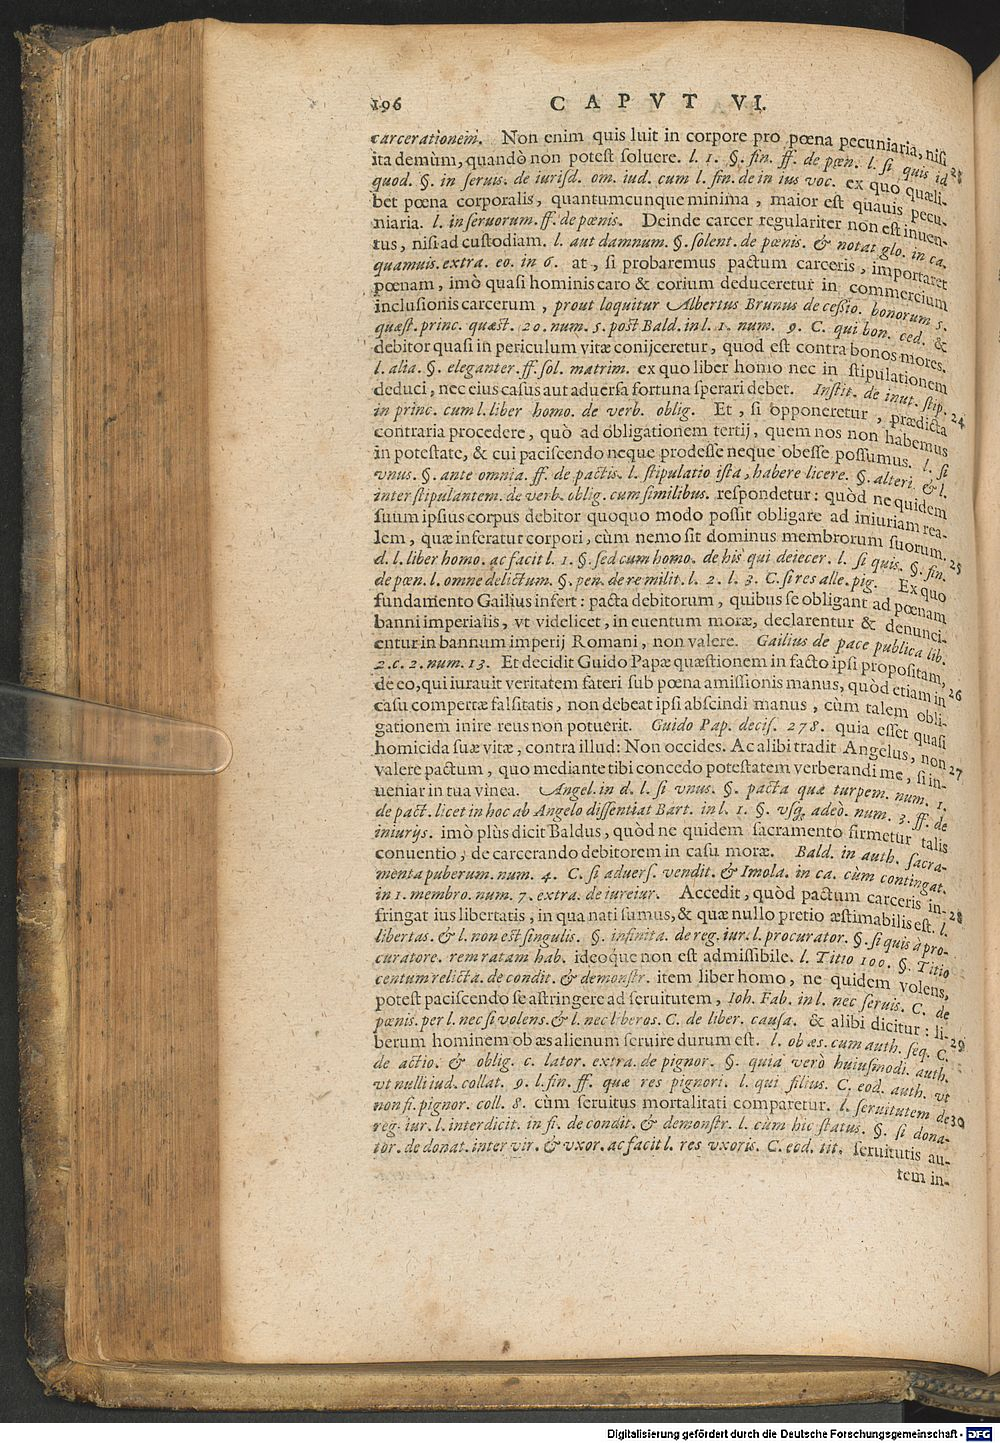 196 CAPVT VI.
carcerationem. Non enim quis luit in corpore pro pœna pecuniaria, nisi
ita demùm, quandò non potest soluere. l. 1. §. fin. ff. de pœn. l. si quis id 23
quod. §. in seruis. de iurisd. om. iud. cum l. fin. de in ius voc. ex quo quæli-
bet pœna corporalis, quantumcunque minima, maior est quauis pecu-
niaria. l. in seruorum. ff. de pœnis. Deinde carcer regulariter non est inuen-
tus, nisi ad custodiam. l. aut damnum. §. solent. de pœnis. & notat glo. in ca.
quamuis. extra. eo. in 6. at, si probaremus pactum carceris, importaret
pœnam, imò quasi hominis caro & corium deduceretur in commercium
inclusionis carcerum, prout loquitur Albertus Brunus de cessio. bonorum 5.
quæst. princ. quæst. 20. num. 5. post Bald. in l. 1. num. 9. C. qui bon. ced. &
debitor quasi in periculum vitæ conijceretur, quod est contra bonos mores.
l. alia. §. eleganter. ff. sol. matrim. ex quo liber homo nec in stipulationem
deduci, nec eius casus aut aduersa fortuna sperari debet. Instit. de inut. stip. 24
in princ. cum l. liber homo. de verb. oblig. Et, si opponeretur, prædicta
contraria procedere, quò ad obligationem tertij, quem nos non habemus
in potestate, & cui paciscendo neque prodesse neque obesse possumus. l. si
vnus. §. ante omnia. ff. de pactis. l. stipulatio ista, habere licere. §. alteri. & l.
inter stipulantem. de verb. oblig. cum similibus. respondetur: quòd ne quidem
suum ipsius corpus debitor quoquo modo possit obligare ad iniuriam rea-
lem, quæ inferatur corpori, cùm nemo sit dominus membrorum suorum. 25
d. l. liber homo. ac facit l. 1. §. sed cum homo. de his qui deiecer. l. si quis. §. fin.
de pœn. l. omne delictum. §. pen. de re milit. l. 2. l. 3. C. si res alle. pig. Ex quo
fundamento Gailius infert: pacta debitorum, quibus se obligant ad pœnam
banni imperialis, vt videlicet, in euentum moræ, declarentur & denunci-
entur in bannum imperij Romani, non valere. Gailius de pace publica lib.
2. c. 2. num. 13. Et decidit Guido Papæ quæstionem in facto ipsi propositam,
de eo, qui iurauit veritatem fateri sub pœna amissionis manus, quòd etiam in 26
casu compertæ falsitatis, non debeat ipsi abscindi manus, cùm talem obli-
gationem inire reus non potuerit. Guido Pap. decis. 278. quia esset quasi
homicida suæ vitæ, contra illud: Non occides. Ac alibi tradit Angelus, non 27
valere pactum, quo mediante tibi concedo potestatem verberandi me, si in-
ueniar in tua vinea. Angel. in d. l. si vnus. §. pacta quæ turpem. num. 1.
de pact. licet in hoc ab Angelo dissentiat Bart. in l. 1. §. vsq; adeò. num. 3. ff. de
iniurijs. imò plùs dicit Baldus, quòd ne quidem sacramento firmetur talis
conuentio, de carcerando debitorem in casu moræ. Bald. in auth. sacra-
menta puberum. num. 4. C. si aduers. vendit. & Imola. in ca. cùm contingat.
in 1. membro. num. 7. extra. de iureiur. Accedit, quòd pactum carceris in- 28
fringat ius libertatis, in qua nati sumus, & quæ nullo pretio æstimabilis est. l.
libertas. & l. non est singulis. §. infinita. de reg. iur. l. procurator. §. si quis à pro-
curatore. rem ratam hab. ideoque non est admissibile. l. Titio 100. §. Titio
centum relicta. de condit. & demonstr. item liber homo, ne quidem volens,
potest paciscendo se astringere ad seruitutem, Ioh. Fab. in l. nec seruis. C. de
pœnis. per l. nec si volens. & l. nec liberos. C. de liber. causa. & alibi dicitur: li- 29
berum hominem ob æs alienum seruire durum est. l. ob æs. cum auth. seq. C.
de actio. & oblig. c. lator. extra. de pignor. §. quia verò huiusmodi. auth.
vt nulli iud. collat. 9. l. fin. ff. quæ res pignori. l. qui filius. C. eod. auth. vt
non fi. pignor. coll. 8. cùm seruitus mortalitati comparetur. l. seruitutem de 30
reg. iur. l. interdicit. in fi. de condit. & demonstr. l. cùm hic status. §. si dona-
tor. de donat. inter vir. & vxor. ac facit l. res vxoris. C. eod. tit. seruitutis au-
tem in-
Digitalisierung gefördert durch die Deutsche Forschungsgemeinschaft - DFG